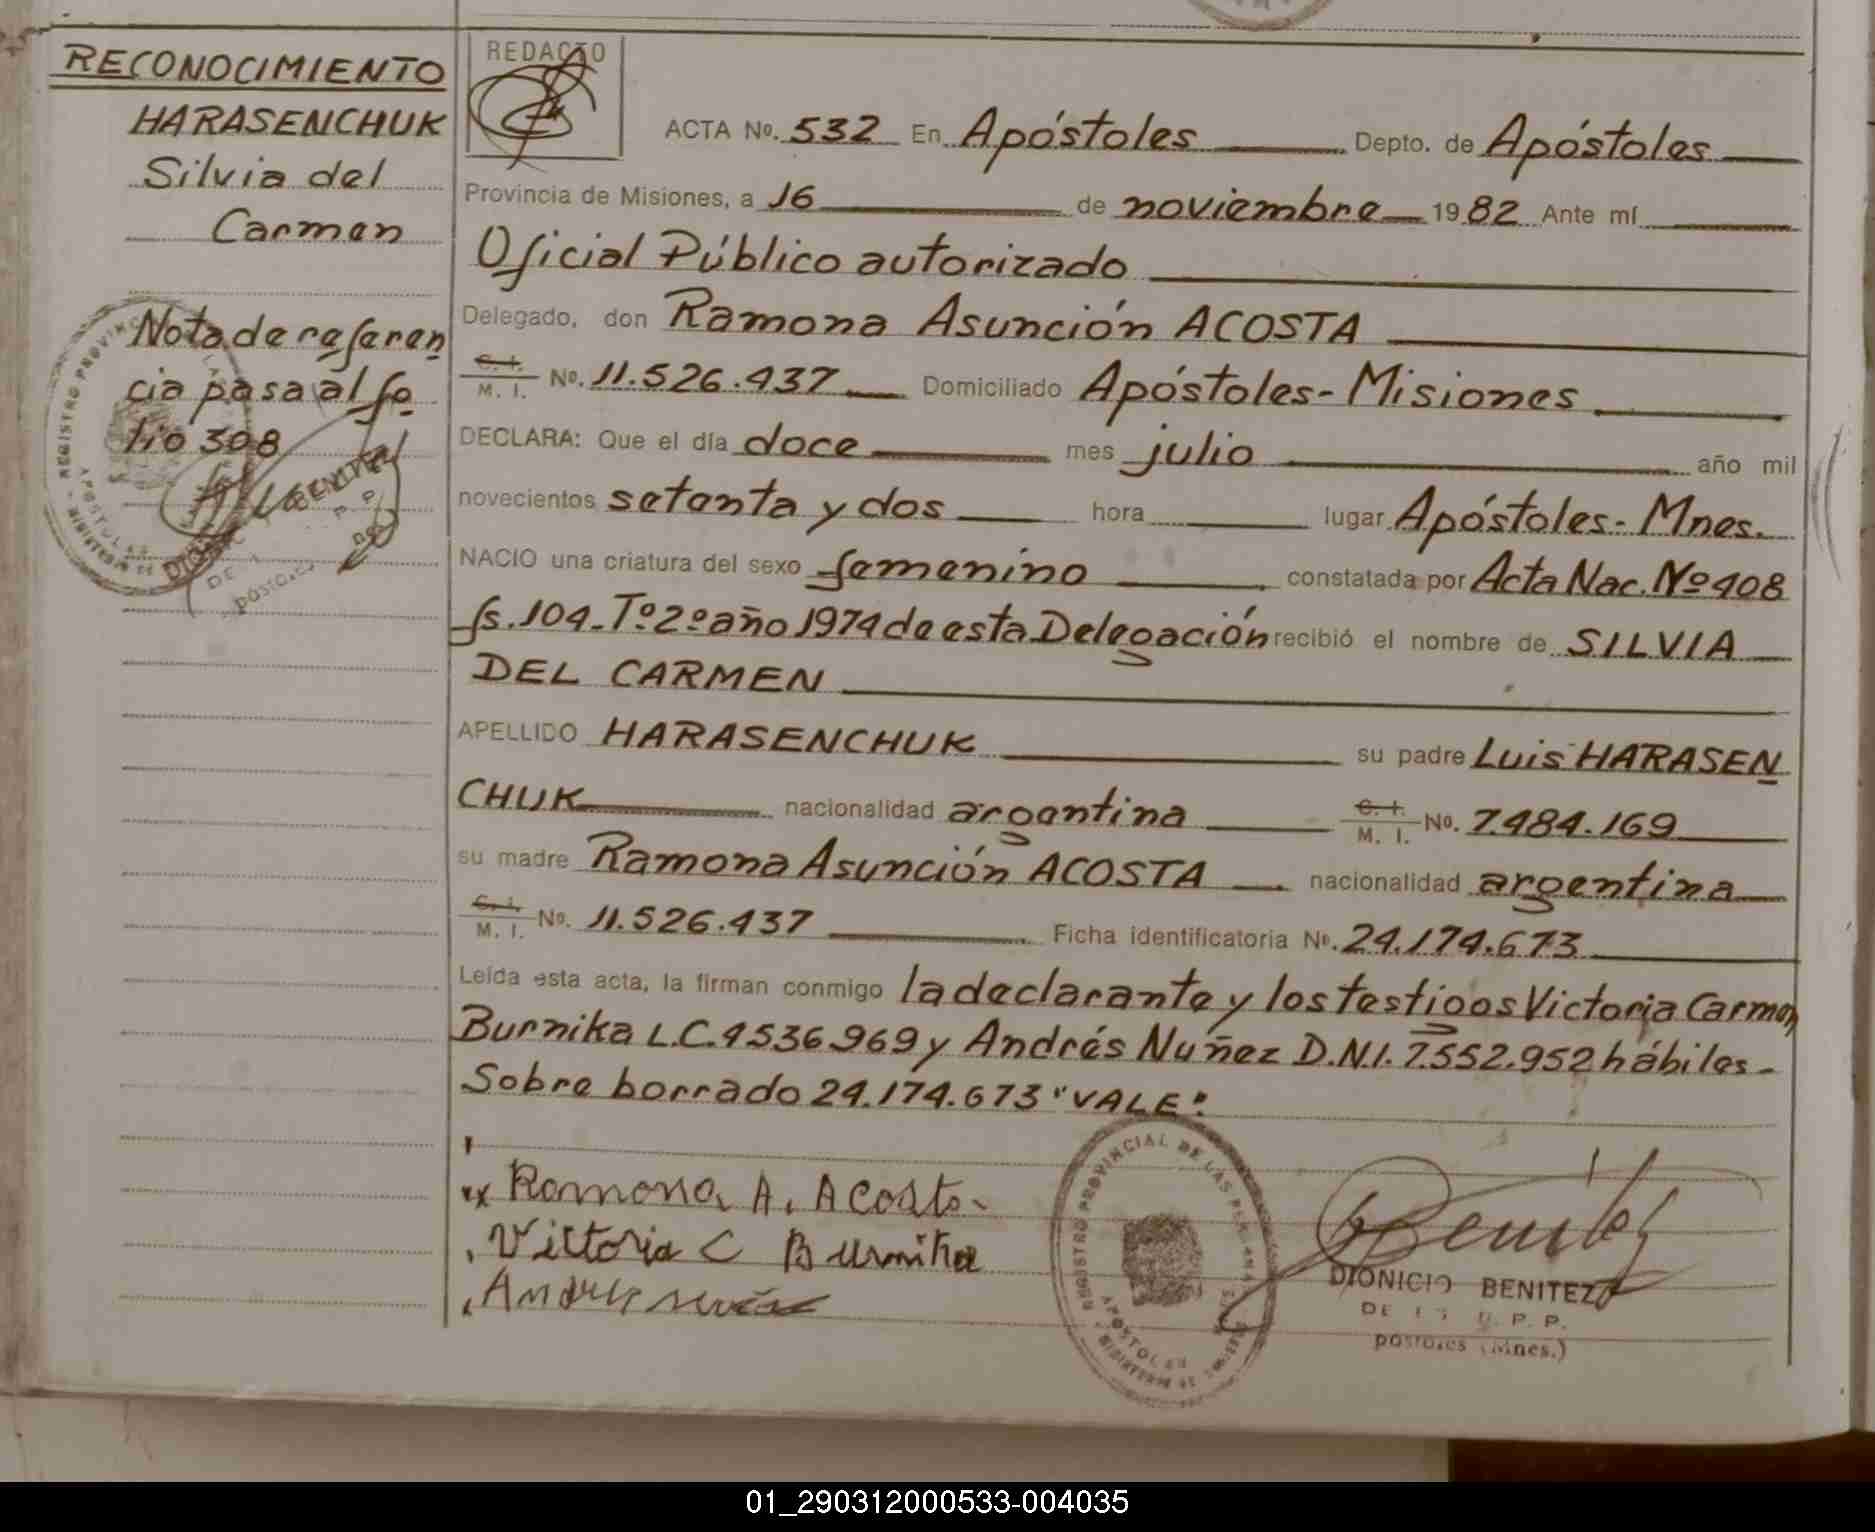 RECONOCIMIENTO
HARASENCHUK
Silvia del
Carmen
Nota de referen
cia pasa al fo
lio 308
REDACTO
ACTA No. 532 En Apóstoles Depto. de Apóstoles
Provincia de Misiones, a 16 de noviembre 1982 Ante mí
Oficial Público autorizado
Delegado, don Ramona Asunción ACOSTA
C. I. / M. I. No. 11.526.437 Domiciliado Apóstoles-Misiones
DECLARA: Que el día doce mes julio año mil
novecientos setenta y dos hora lugar Apóstoles-Mnes.
NACIO una criatura del sexo femenino constatada por Acta Nac. Nº 408
fs. 104. Tº 2º año 1974 de esta Delegación recibió el nombre de SILVIA
DEL CARMEN
APELLIDO HARASENCHUK su padre Luis HARASEN
CHUK nacionalidad argentina C. I. / M. I. No. 7.484.169
su madre Ramona Asunción ACOSTA nacionalidad argentina
C. I. / M. I. No. 11.526.437 Ficha identificatoria No. 24.174.673
Leída esta acta, la firman conmigo la declarante y los testigos Victoria Carmen
Burnika L.C. 4536969 y Andrés Nuñez D.N.I. 7.552.952 hábiles-
Sobre borrado 24.174.673 "VALE".
Ramona A. Acosta
Victoria C Burnika
REGISTRO PROVINCIAL DE LAS PERSONAS
APOSTOLES
Benitez
DIONICIO BENITEZ
postoles (Mnes.)
01_290312000533-004035